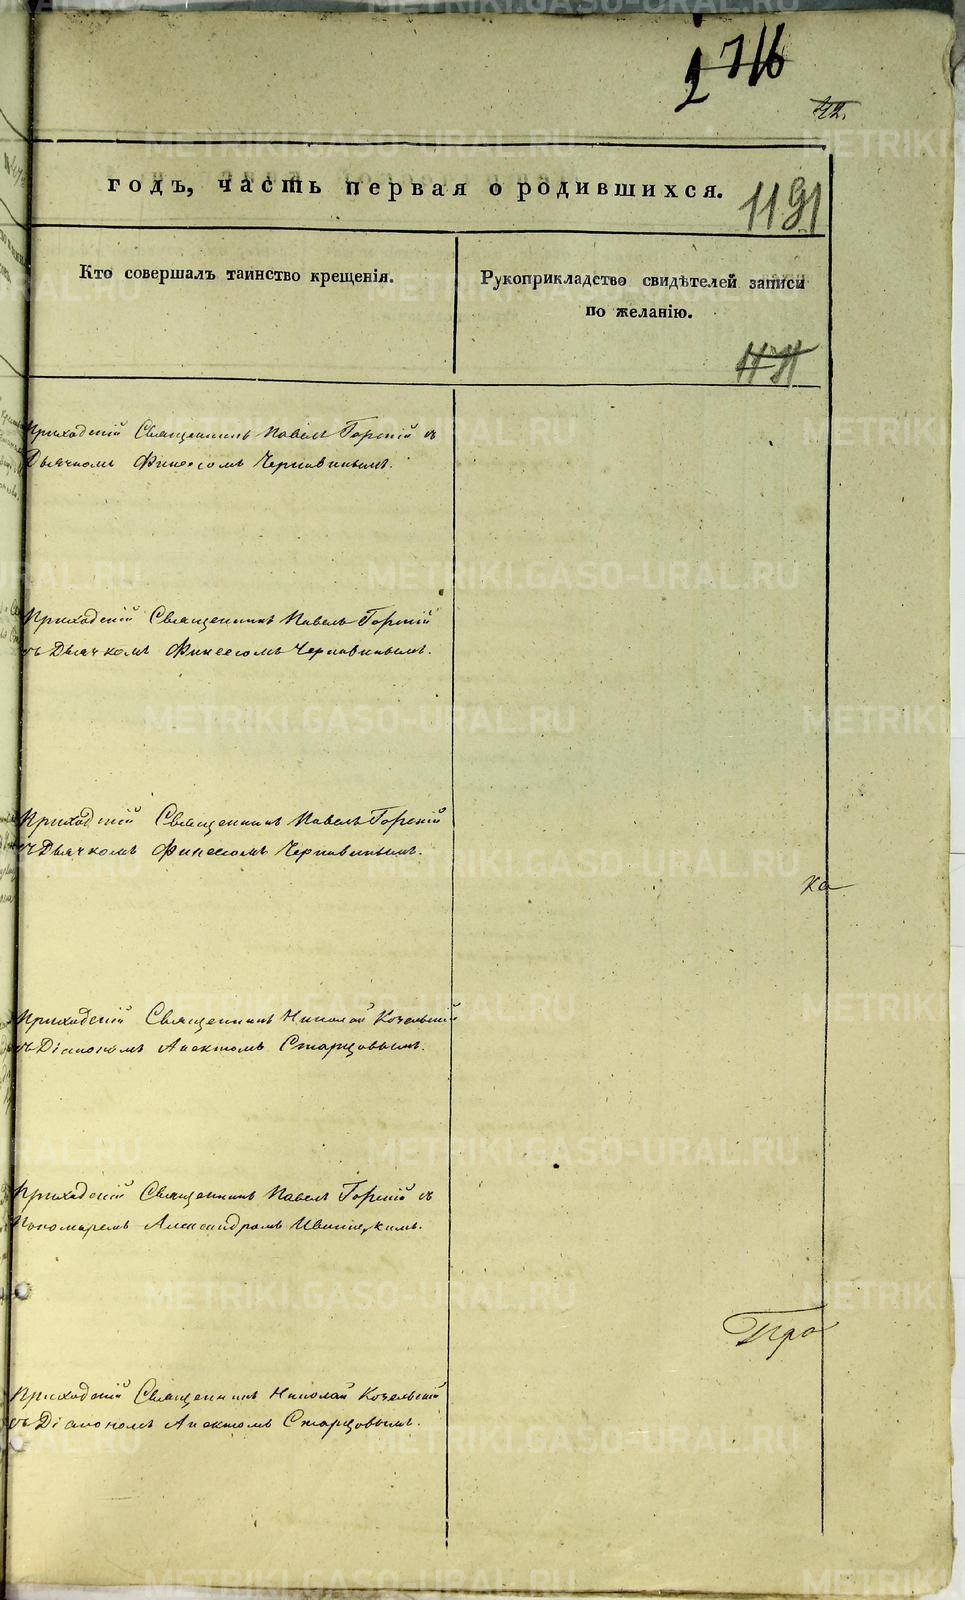 2 716
42.
годъ, часть первая о родившихся.
1191
Кто совершалъ таинство крещенія.
Рукоприкладство свидѣтелей записи
по желанію.
Приходскій Священникъ Павелъ Горскій съ
Дьячкомъ Финеесомъ Чернавинымъ.
Приходскій Священникъ Павелъ Горскій
съ Дьячкомъ Финеесомъ Чернавинымъ.
Приходскій Священникъ Павелъ Горскій
съ Дьячкомъ Финеесомъ Чернавинымъ.
ка
Приходскій Священникъ Николай Козельскій
съ Діакономъ Старцовымъ.
Приходскій Священникъ Павелъ Горскій съ
Пономаремъ Александромъ
Про
Приходскій Священникъ Николай Козельскій
съ Діакономъ Старцовымъ.
METRIKI.GASO-URAL.RU